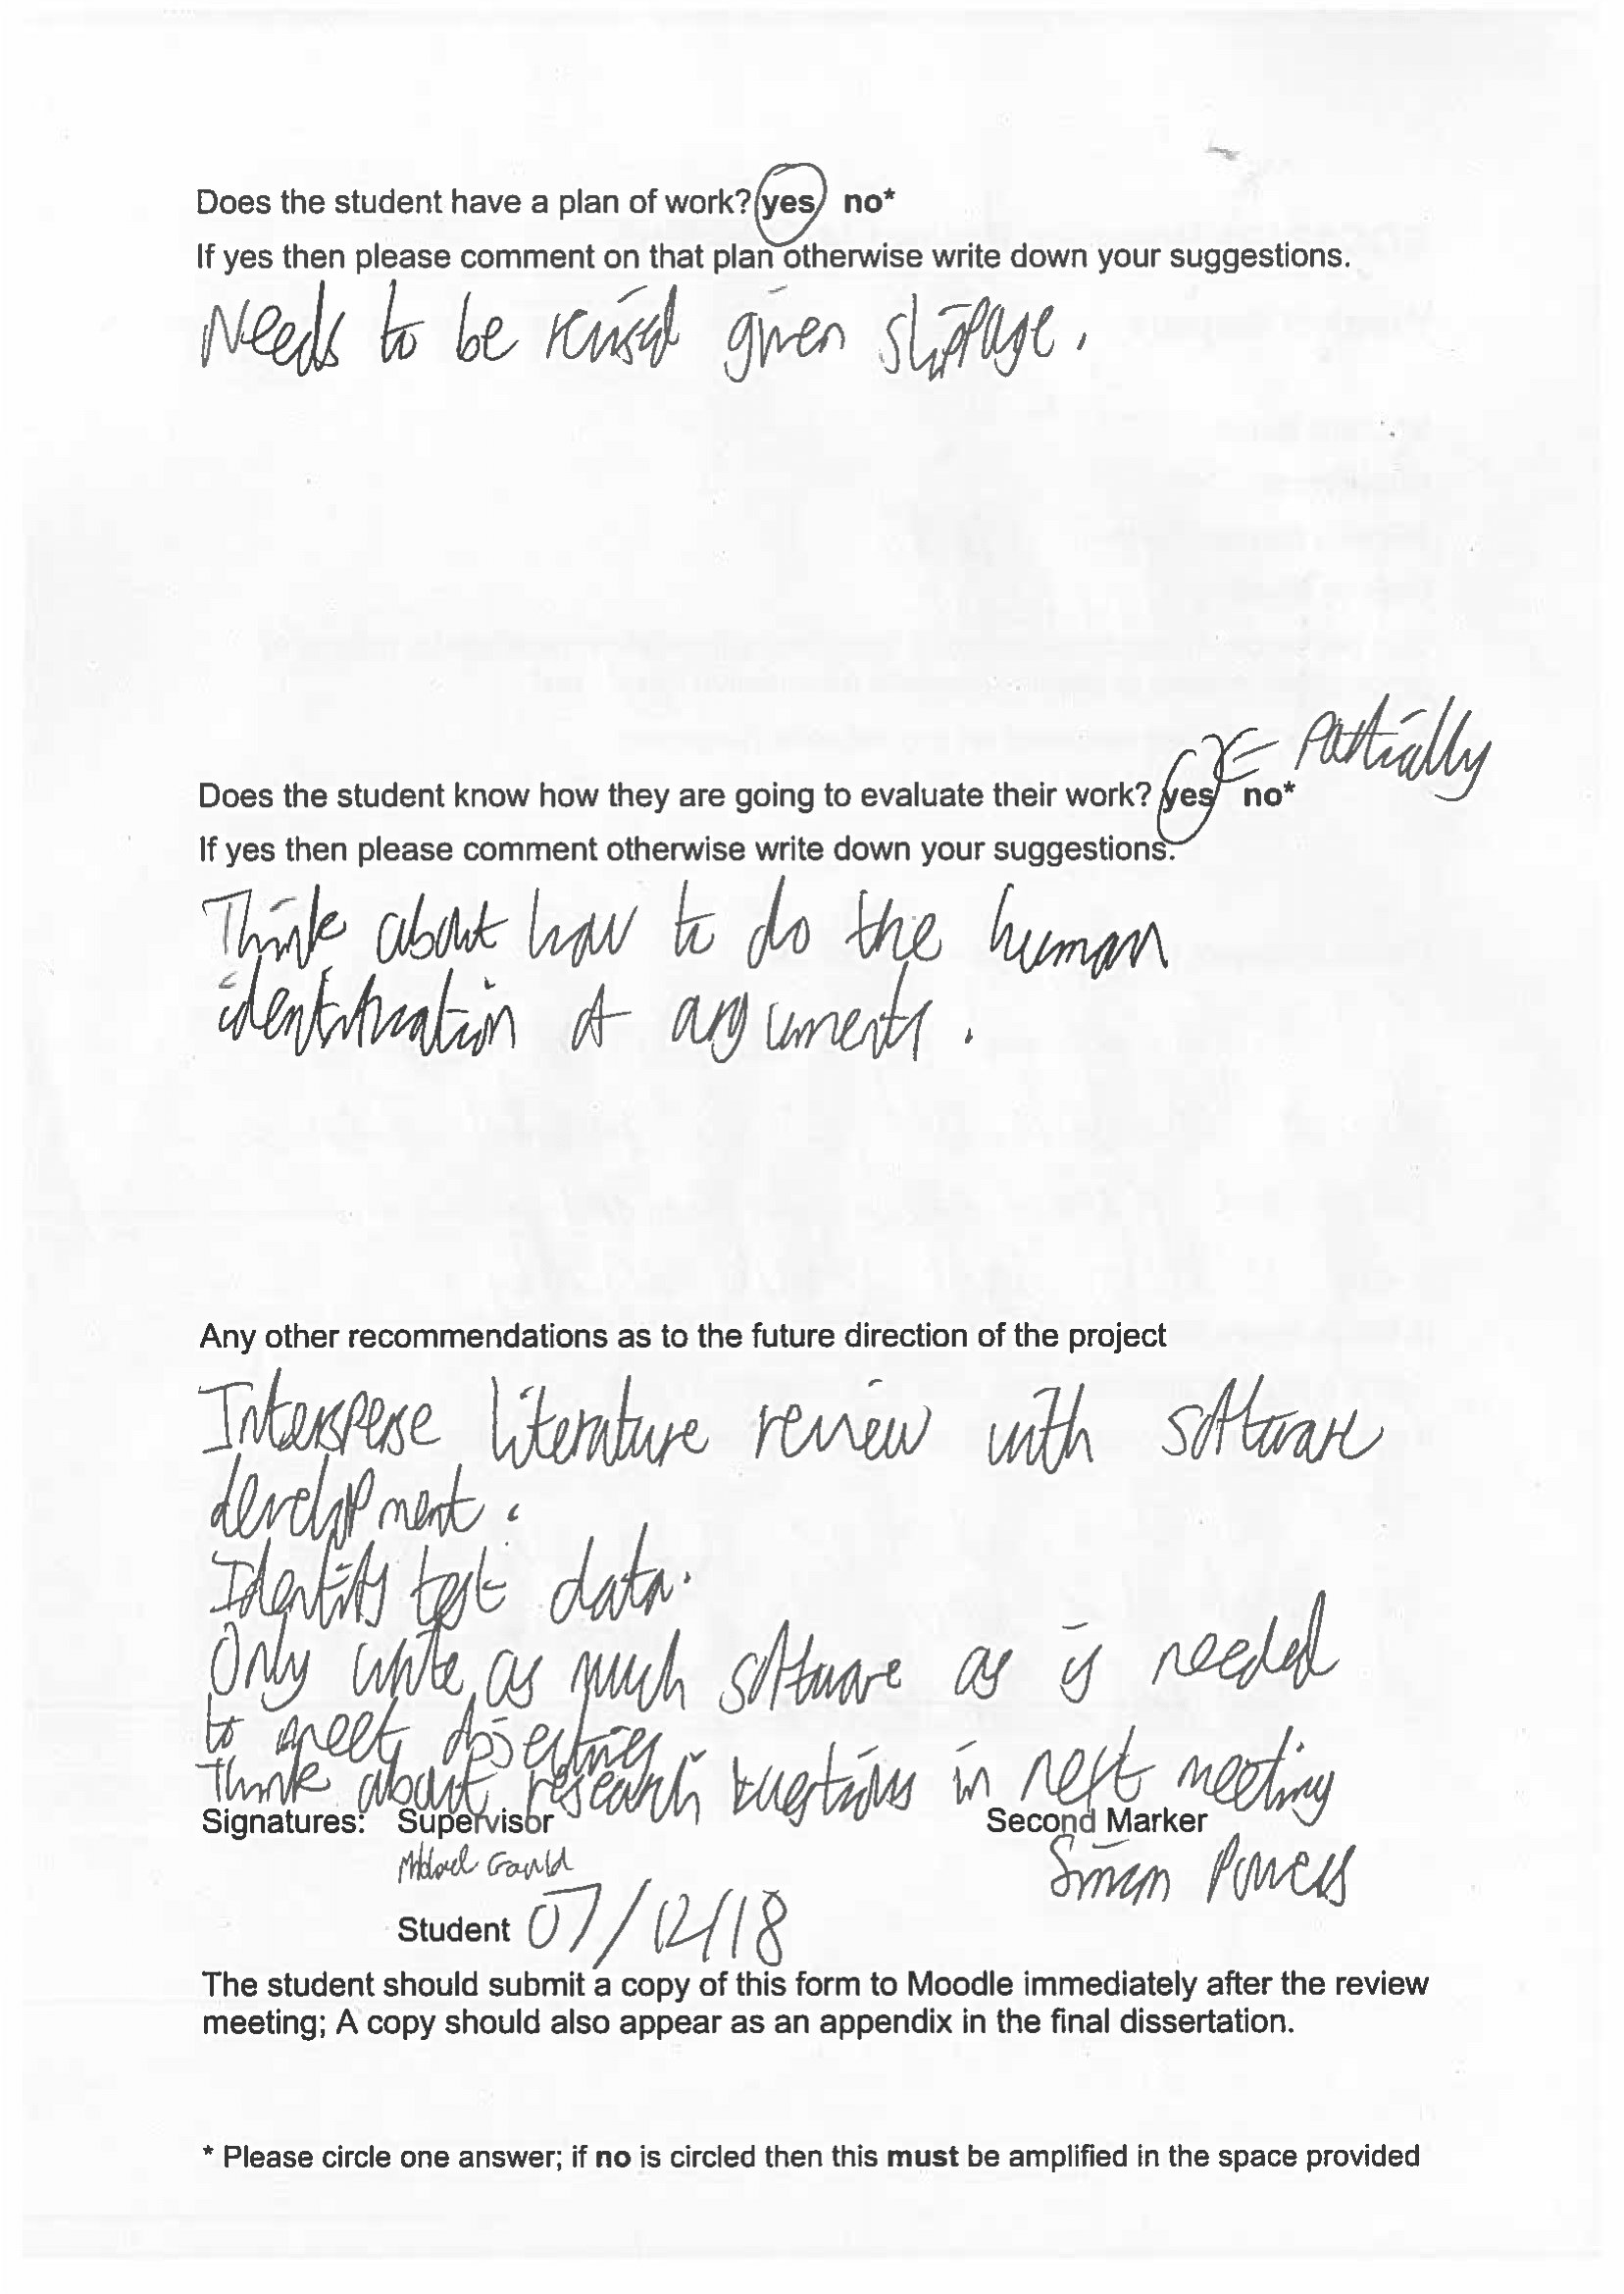 Does the student have a plan of work? yes no*
If yes then please comment on that plan otherwise write down your suggestions.
Needs to be revised given slippage.
= Partially
Does the student know how they are going to evaluate their work? yes no*
If yes then please comment otherwise write down your suggestions.
Think about how to do the human
identification of arguments.
Any other recommendations as to the future direction of the project
Intersperse literature review with software
development.
Identify test data.
Only write as much software as is needed
to meet objectives
Think about research questions in next meeting
Signatures: Supervisor Second Marker
Simon Powers
Student 07/12/18
The student should submit a copy of this form to Moodle immediately after the review
meeting; A copy should also appear as an appendix in the final dissertation.
* Please circle one answer; if no is circled then this must be amplified in the space provided